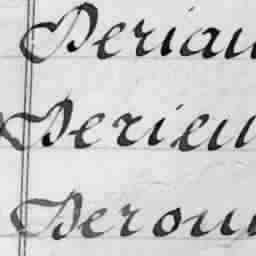 Deriau
Derieu
Derou